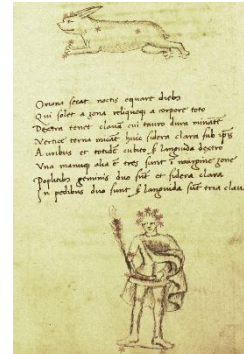 Oriona secat noctis equare diebus
Qui solet a zona reliquoque a corpore toto
Dextra tenet clavam cui tauro dura minatur
Vertice terna micant huic sidera clara sub ipsis
Auribus et totidem cubito languida dextro
Una manuque alia tres sunt in margine zone
Poplitibus geminis duo sunt et sidera clara
In pedibus duo sunt languida sunt tria clava